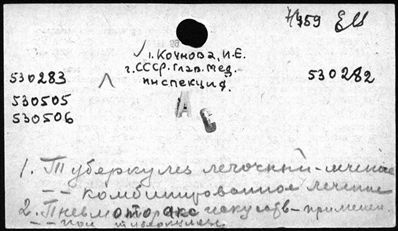 1. Кочнова, И.Е.
г. СССР. Глав. Мед.
инспекция.
530283
530282
530505
530506
А
С
1. Туберкулез легочный - лечение
-- - комбинированное лечение
2. Пневмоторакс искусств - применен.
-- при туберкулезе